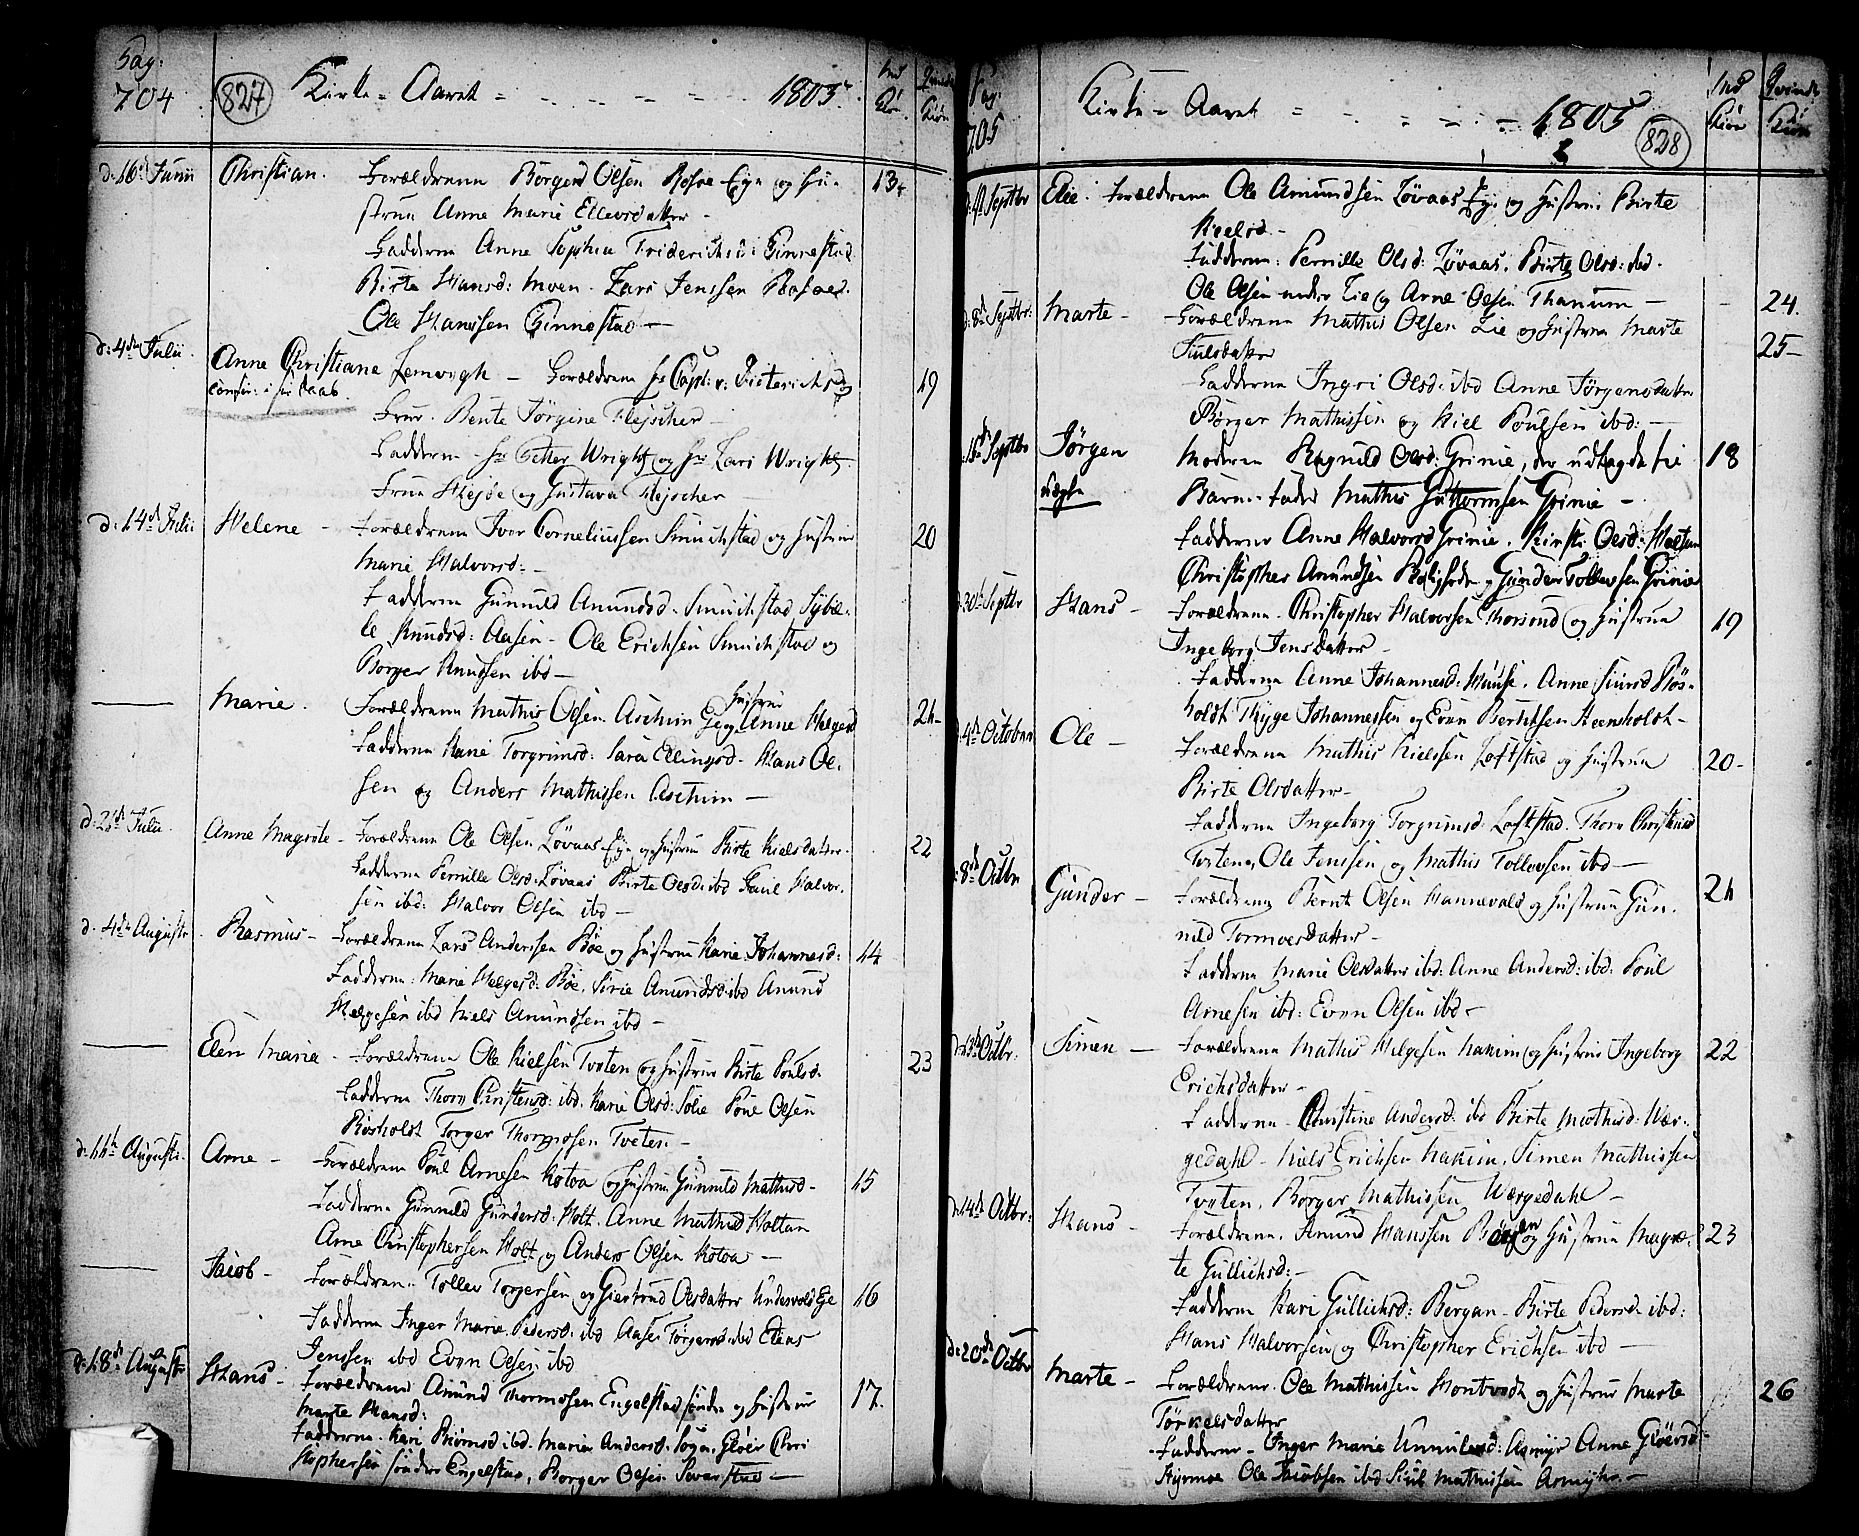 Pag:
704
827
Kirke - Aaret - 1805.
Md Kiøn
Qvinde Kiøn
d: 16de Junii Christian. Forældrene Børger Olsen Eye og Hu-
struen Anne Marie Ellevsdatter -
Fadderne Anne Sophia Friderichsd: Ginnestad
Birte Hansd: Moen. Lars Jenssen
Ole Hanssen Ginnestad -
13.
d: 4de Julii. Anne Christiane Lemvigh - Forældrene hr Capt: v:
Frue. Bente Jørgine Flejscher -
Fadderne - hr Petter Wright og hr Lars Wright.
Frue Hejde og Gustava Flejscher -
19
d: 14de Julii Helene - Forældrene Iver Corneliussen og Hustrue
Marie Halvorsd: -
Fadderne Gunnild Amundsd.
Knudsd: Aasen - Ole Erichsen og
Borger Knudsen ibd -
20
Marie. Forældrene Mathis Olsen Aschim Eye og Hustrue Anne Helgesd
Fadderne Karie Torgrimsd: Sara Ellingsd. Hans Ol-
sen og Anders Mathissen Aschim -
21-
Julii. Anne Magrete - Forældrene Ole Olsen Løvaas Eye og Hustrue Birte Kielsdatter.
Fadderne Pernille Olsd: Løvaas Birte Olsd: ibd Halvor-
sen ibd: Halvor Olsen ibd -
22
d. 4de Augusti Rasmus - Forældrene Lars Andersen Bøe og Hustrue Karie Johannesd:
Fadderne: Marie Helgesd: Bøe, Sirie Amundsd: ibd Amund
Helgesen ibd Niels Amundsen ibd -
14
Elen Maria - Forældrene Ole Kielsen Tveten og Hustrue Birte Poulsd.
Fadderne Thore Christensd: ibd. Karie Olsd: Solie Poul Olsen
Røsholdt Torger Thormosen Tveten -
23
d: 11te Augusti. Arne - Forældrene Poul Arnesen Kotoa og Hustrue Gunnild Mathisd -
Fadderne Gunnild Gundersd: Holt. Anne Mathisd Holtan
Arne Christophersen Holt og Anders Olsen Kotoa -
15
Jacob - Forældrene Tollev Torgersen og Giertrud Olsdatter Undersvold Eye
Fadderne Inger Marie Pedersd: ibd Aase Torgersd: ibd Elias
Jenssen ibd Even Olsen ibd
16
d: 18de Augusti Hans - Forældrene Amund Thormosen Engelstad søndre og Hustrue
Marte Hansd:
Fadderne. Kari Biørnsd: ibd. Maria Andersd. Sogn, Gloer Chri
stophersen søndre Engelstad, Borger Olsen -
17.
Pag.
705
Kirke - Aaret - 1805
828
Md Kiøn
Qvinde Kiøn
Septbr Elie. Forældrene Ole Amundsen Løvaas Eye og Hustrue Birte
Kielsd. -
Fadderne: Pernille Olsd: Løvaas. Birte Olsd: ibd.
Ole Olsen nedre Lie og Arne Olsen Thanum -
24.
d: 8de Septbr: Marte - Forældrene Mathis Olsen Lie og Hustrue Marte
Siulsdatter
Fadderne Ingri Olsd: ibd Anne Jørgensdatter
Børger Mathissen og Kiel Poulsen ibd: -
25-
Septbr Jørgen
uægte
Moderen Ragnild Olsd: Grinie, der udlagde til
Barne-Fader Mathis Guttormsen Grinie -
Fadderne Anne Halvorsd Grinie. Kirsti Olsd: Holtan
Christopher Amundsen og Gunder Tollevsen Grinie
18
d: 30te Septbr Hans - Forældrene Christopher Halvorsen Thorsrud og Hustrue
Ingeborg Jensdatter -
Fadderne Anne Johannesd: Anne Røs-
holdt Thyge Johannessen og Even Bertelsen Steensholdt -
19
d: 4de October Ole - Forældrene Mathis Nielssen Loftstad og Hustrue
Birte Olsdatter -
Fadderne Ingeborg Torgrimsd: Loftstad. Thore Christensd
Tveten, Ole Jenssen og Mathis Tollevsen ibd -
20-
d: 8de Octbr Gunder - Forældrene Bernt Olsen Hannevold og Hustrue Gun-
nild Tormoesdatter -
Fadderne Maria Olsdatter ibd: Anne Andersd: ibd: Poul
Arnesen ibd: Even Olsen ibd -
21
d: 13de Octbr: Simen - Forældrene Mathis Helgesen Kakim og Hustrue Ingeborg
Erichsdatter -
Fadderne - Christine Andersd: ibd Birte Mathisd: Vær-
gedahl - Niels Erichsen Kakim, Simen Mathissen
Tveten. Børger Mathissen Wærgedahl -
22
d: 14de Octbr: Hans - Forældrene. Amund Hanssen og Hustrue Magre-
te Gullichsd: -
Fadderne Kari Gullichsd: Bergan - Birte Pedersd: ibd:
Hans Halvorsen og Christopher Erichsen ibd -
23
d: 20de Octbr Marte - Forældrene. Ole Mathissen Hontvedt og Hustrue Marte
Torkelsdatter
Fadderne - Inger Marie Asmyr Anne Gloersd
Ole Jacobsen ibd Siul Mathissen Asmyhr. -
26